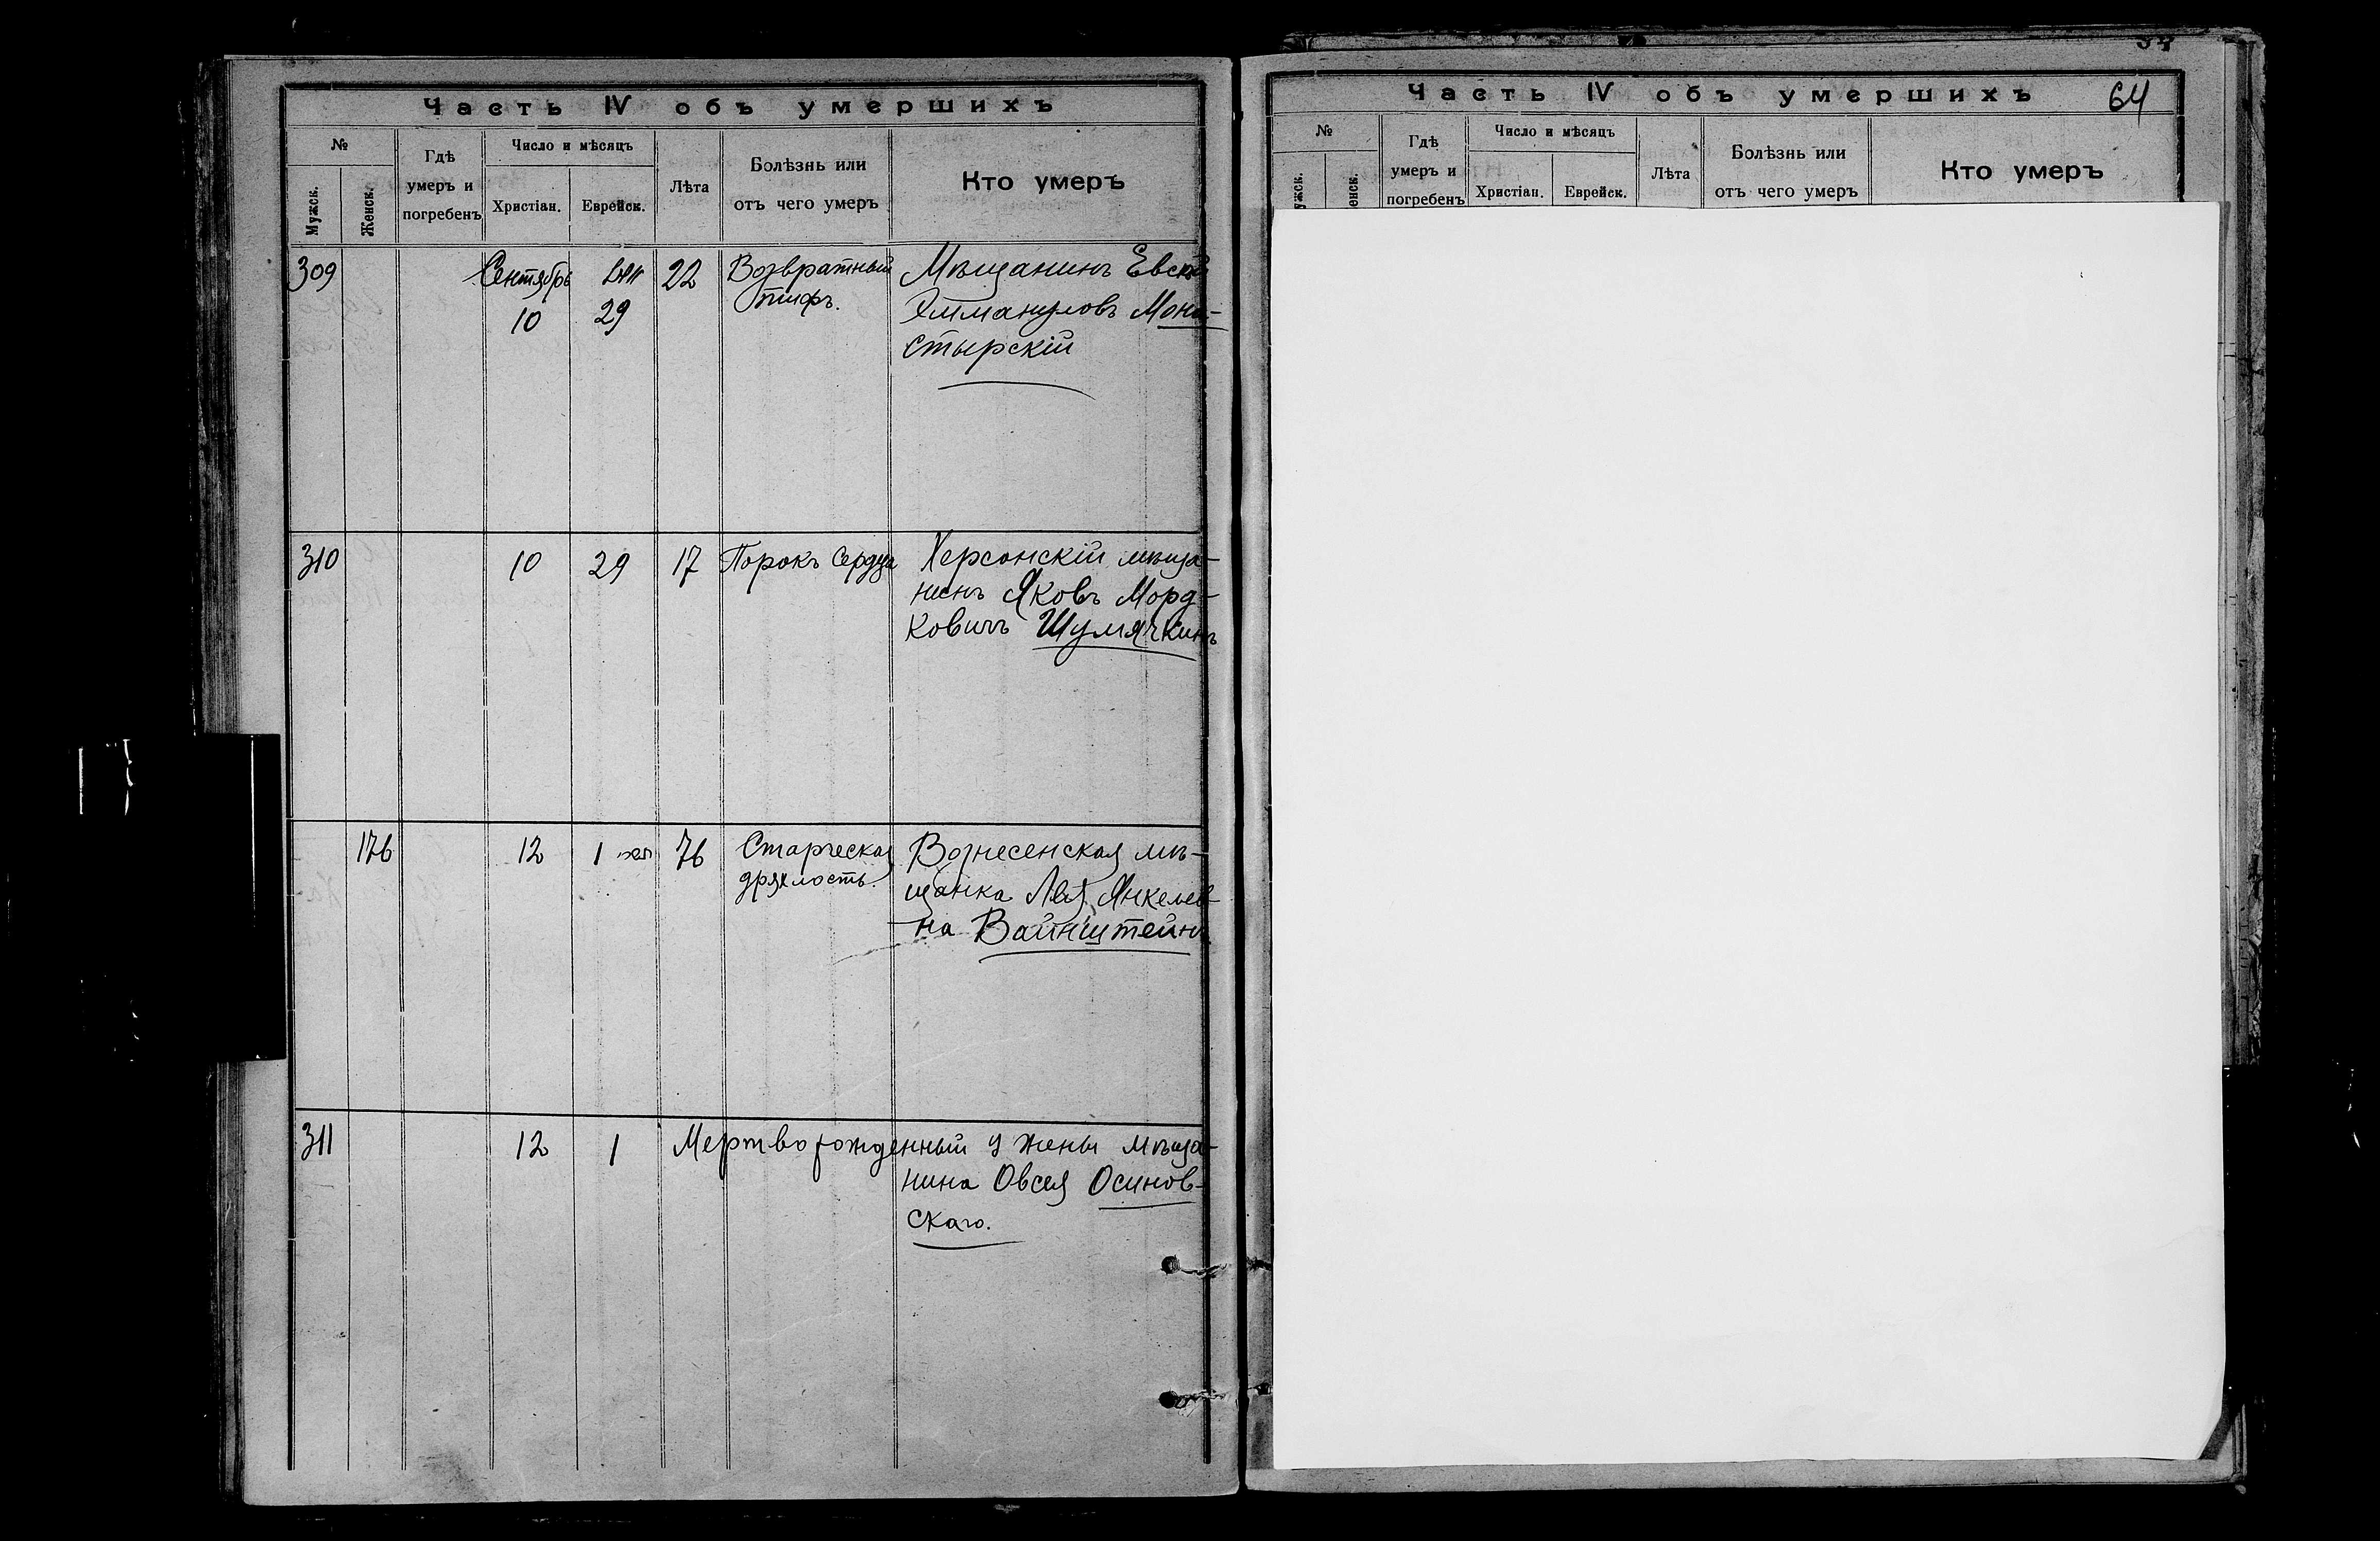 Часть IV объ умершихъ
№
Мужск.
Женск.
Гдѣ
умеръ и
погребенъ
Число и мѣсяцъ
Христіан.
Еврейск.
Лѣта
Болѣзнь или
отъ чего умеръ
Кто умеръ
309
Сентябрь
10
אלול
29
22
Возвратный
тифъ.
Мѣщанинъ
Эммануиловъ Мона-
стырскій
310
10
29
17
Порокъ Сердца
Херсонскій мѣща-
нинъ Яковъ Морд-
ковичъ Шумячкинъ
176
12
1
76
Старческая
дряхлость.
Вознесенская мѣ-
щанка Лея Янкелев-
на Вайнштейнъ
311
12
1
Мертворожденный у жены мѣща-
нина Овсея Осинов-
скаго.
Часть IV объ умершихъ
64
№
Гдѣ
умеръ и
погребенъ
Число и мѣсяцъ
Христіан.
Еврейск.
Лѣта
Болѣзнь или
отъ чего умеръ
Кто умеръ